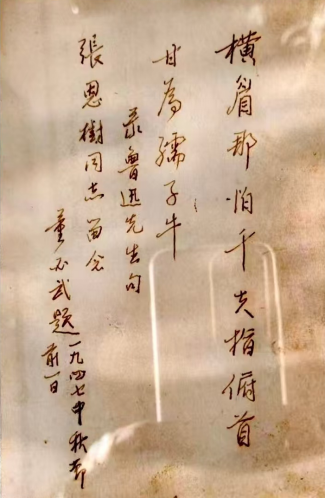 橫眉那怕千夫指俯首
甘為孺子牛
录魯迅先生句
張恩樹同志留念
董必武題一九四七中秋节
前一日